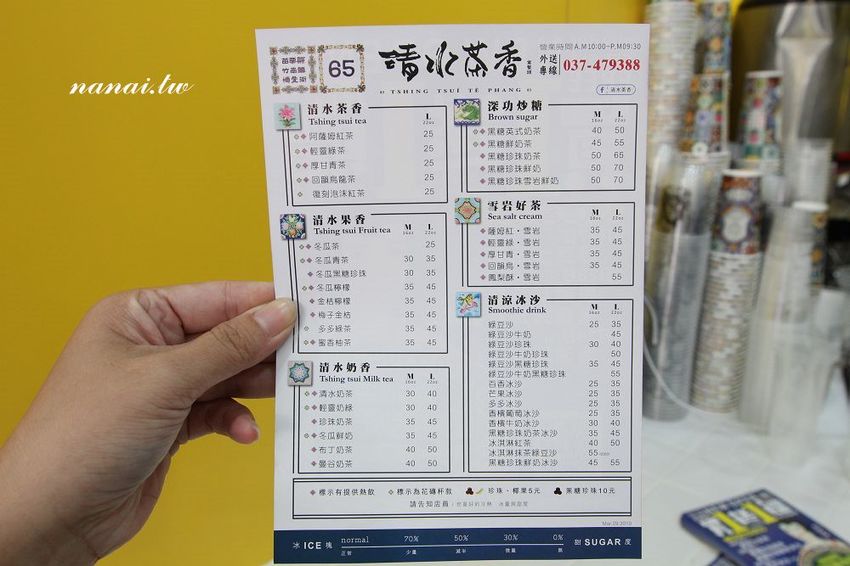 nanai.tw
65
清水茶香
TSHING TSUÍ TÊ PHANG
營業時間A.M10:00~P.M09:30
外送專線 037-479388
清水茶香
清水茶香 L
Tshing tsui tea 22oz
阿薩姆紅茶 25
輕靈綠茶 25
厚甘青茶 25
回韻烏龍茶 25
復刻泡沫紅茶 25
清水果香 M L
Tshing tsui Fruit tea 16oz 22oz
冬瓜茶 25
冬瓜青茶 30 35
冬瓜黑糖珍珠 30 35
冬瓜檸檬 35 45
金桔檸檬 35 45
梅子金桔 35 45
多多綠茶 35 45
蜜香柚茶 35 45
清水奶香 M L
Tshing tsui Milk tea 16oz 22oz
清水奶茶 30 40
輕靈奶綠 30 40
珍珠奶茶 35 45
冬瓜鮮奶 35 45
布丁奶茶 40 50
曼谷奶茶 40 50
深功炒糖 M L
Brown sugar 16oz 22oz
黑糖英式奶茶 40 50
黑糖鮮奶茶 45 55
黑糖珍珠奶茶 50 65
黑糖珍珠鮮奶 50 70
黑糖珍珠雪岩鮮奶 50 70
雪岩好茶 M L
Sea salt cream 16oz 22oz
薩姆紅・雪岩 35 45
輕靈綠・雪岩 35 45
厚甘青・雪岩 35 45
回韻烏・雪岩 35 45
鳳梨酥・雪岩 55
清涼冰沙 M L
Smoothie drink 16oz 22oz
綠豆沙 25 35
綠豆沙牛奶 45
綠豆沙珍珠 30 40
綠豆沙牛奶珍珠 50
綠豆沙黑糖珍珠 35 45
綠豆沙牛奶黑糖珍珠 55
百香冰沙 25 35
芒果冰沙 25 35
多多冰沙 25 35
香檳葡萄冰沙 25 35
香檳牛奶冰沙 30 40
黑糖珍珠奶茶冰沙 35 45
冰淇淋紅茶 40 50
冰淇淋抹茶綠豆沙 55
黑糖珍珠鮮奶冰沙 45 55
標示有提供熱飲 標示為花磚杯款 珍珠、椰果5元 黑糖珍珠10元
請告知店員
Mar.29.2019
冰 ICE 塊 normal 70% 50% 30% 0% 甜 SUGAR 度
正常 少量 減半 微量 無